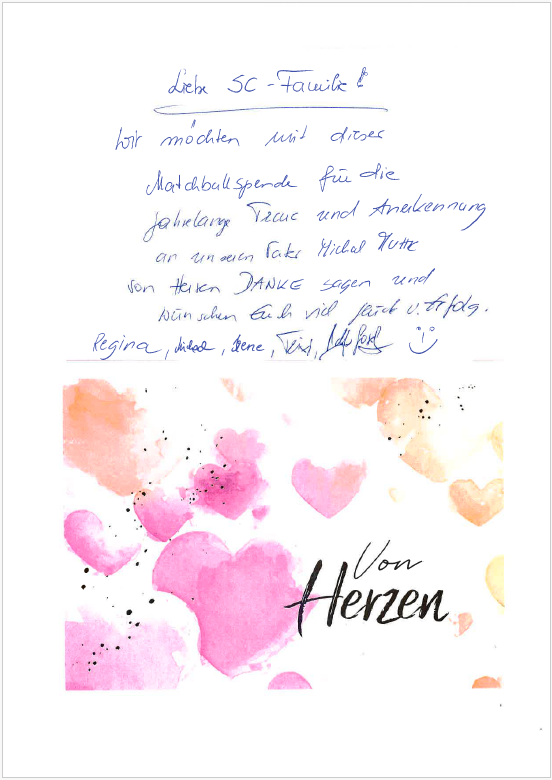 Liebe SC-Familie!
Wir möchten mit dieser
Matchballspende für die
jahrelange Treue und Anerkennung
an unseren Vater Michal
von Herzen DANKE sagen und
wünschen Euch viel Glück u. Erfolg.
Regina, Irene,
Von
Herzen